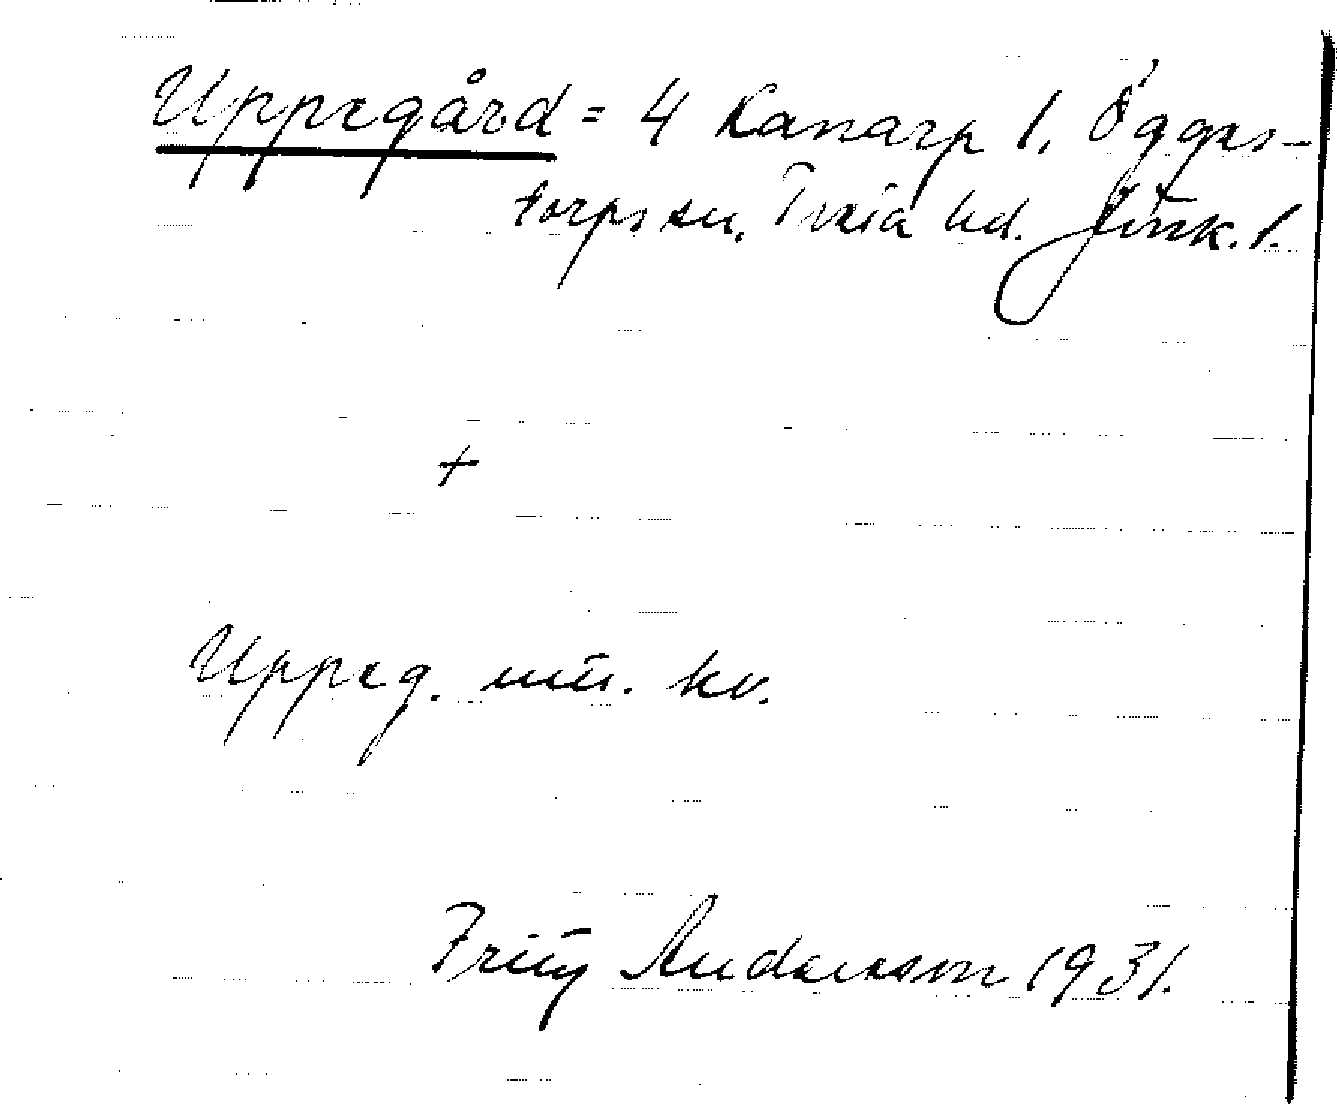 Uppegård = 4 Kanarp 1. Ögges-
torps sn. Tveta hd. Jönk. l.
+
Uppeg. utt. kv.
Fritz Andersson 1931.